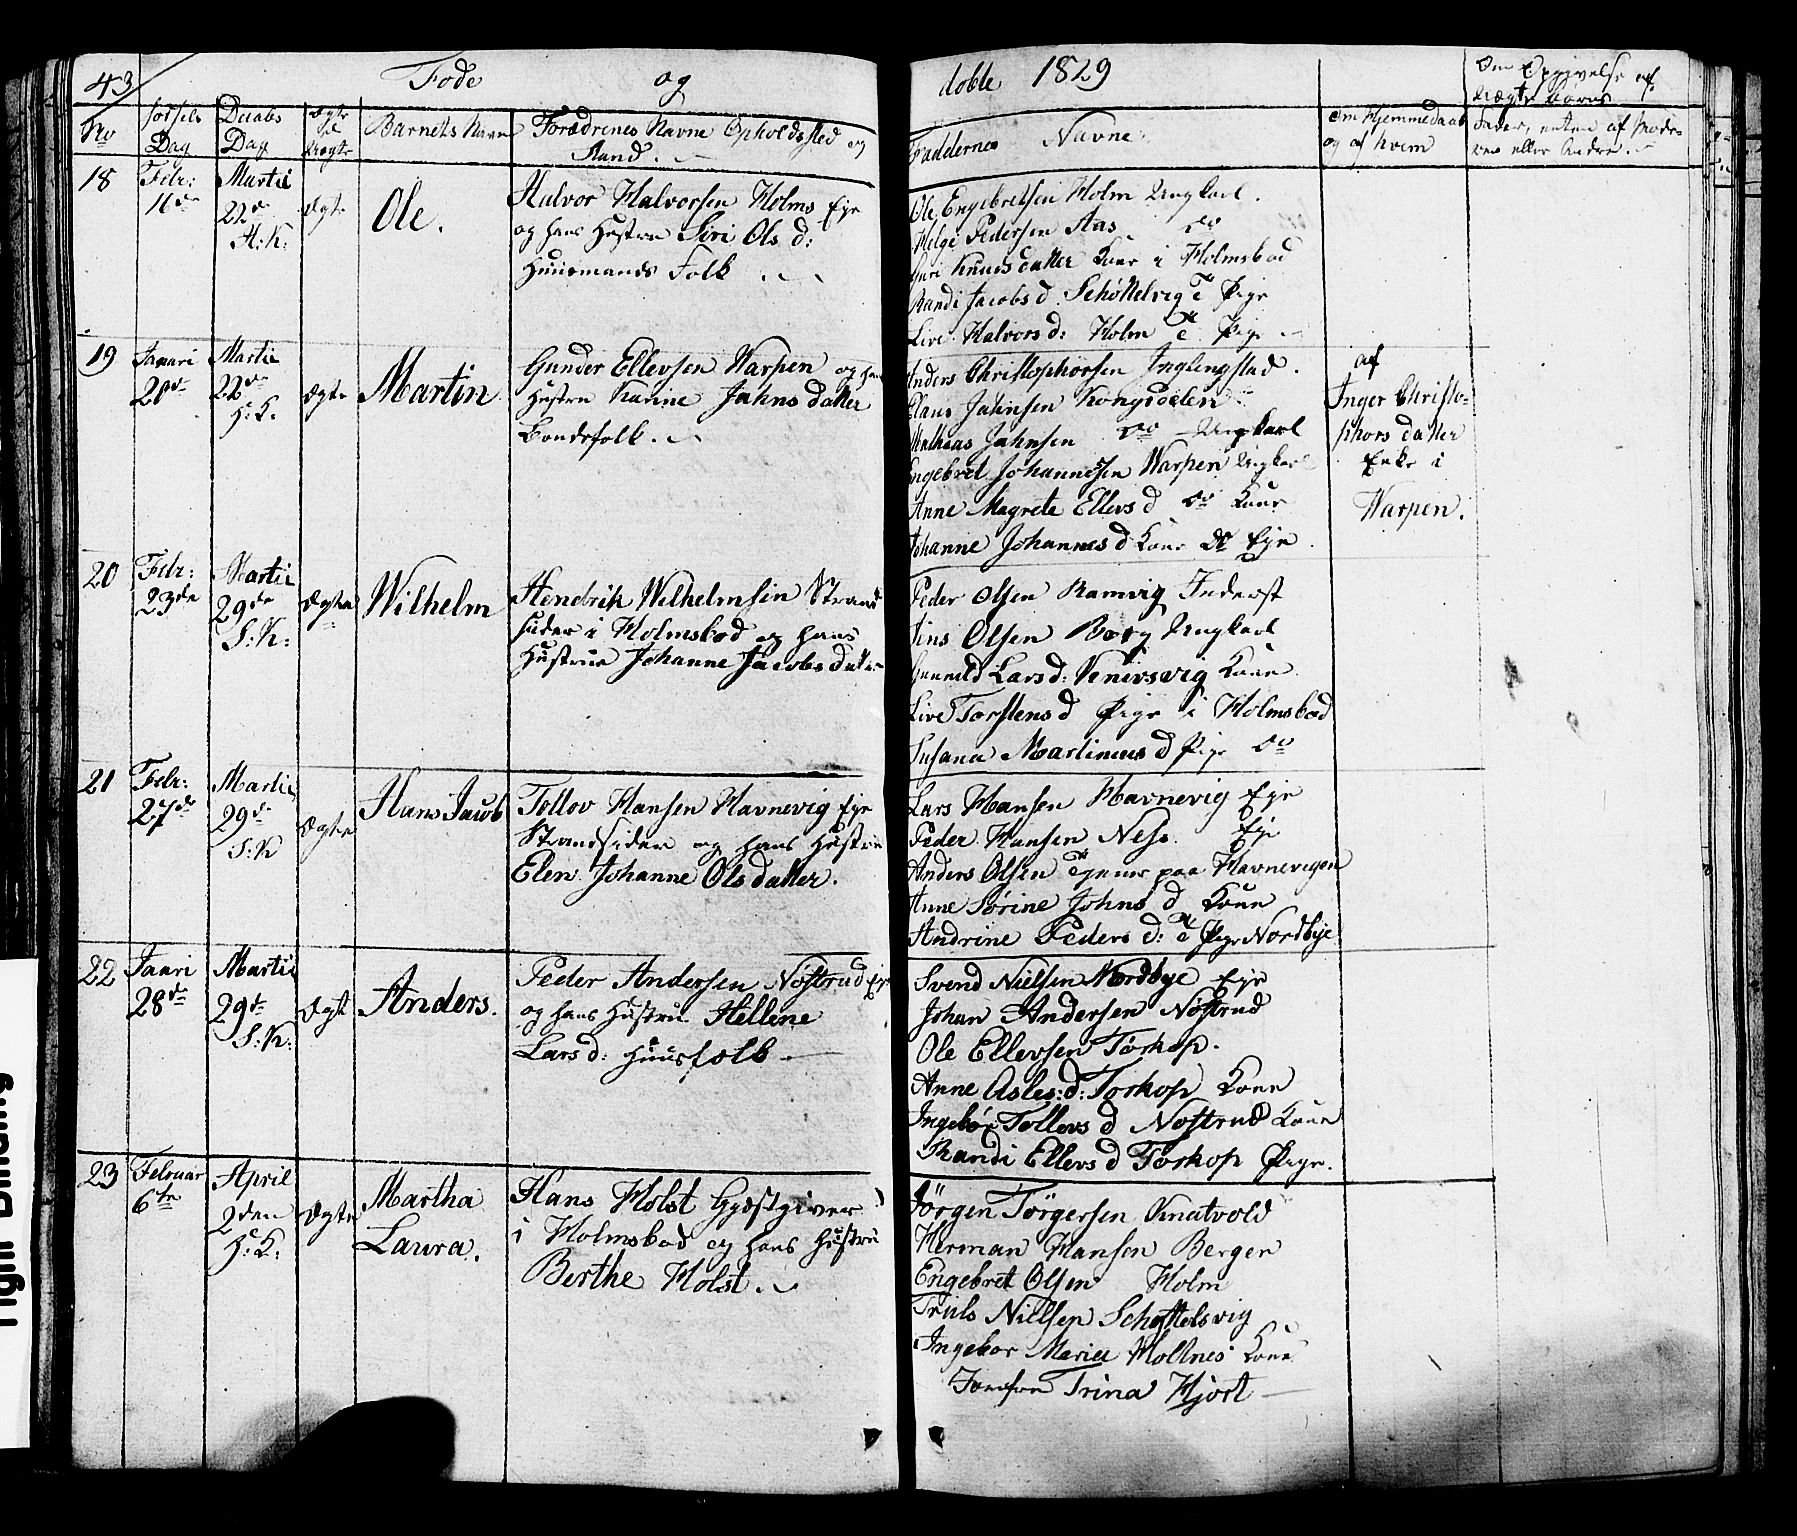 43 Föde og döbte 1829
No Fødsels Dag Daabs Dag Ægte el Uægte Barnets Navn Forældrenes Navne Opholdssted og Stand. Faddernes Navne Om Hjemmedaab og af hvem Om Opgivelse af uægte Børns Fader, enten af Moderen eller Andre.
18 Febr: 16de Martii 22de H:K: Ægte Ole.
Halvor Halvorsen Holms Eje
og hans Hustru Siri Ols d:
Huusmands Folk
Ole Engebretsen Holm Ungkarl.
Helge Pedersen Aas do
Guri Knudsdatter Kone i Holmsbod
Randi Jacobs d. Schöttelvig T Pige
Live Halvors d: Holm E Pige
19 Januari 20de Martii 22de H:K. Ægte Martin
Gunder Ellevsen Warpen og hans
Hustru Karine Jahns datter
Bondefolk.
Anders Christophorsen Inglingstad.
Claus Jahnsen Kongsdelen
Mathias Jahnsen do Ungkarl
Engebret Johannessen Warpen Ungkarl
Anne Magrete Ellevs d do Kone
Johanne Johannes d Kone do Eje
af
Inger Christo-
phors datter
Enke i
Warpen.
20 Febr: 23de Martii 29de S:K: Ægte Wilhelm
Hendrik Wilhelmsen Strand
sider i Holmsbod og hans
Hustrue Johanne Jacobsdatter
Peder Olsen Ramvig Inderst
Jens Olsen Borg Ungkarl
Gunnild Lars d: Venivsvig Kone
Live Torstens d Pige i Holmsbod
Susana Martinus d Pige do
21 Febr: 27de Martii 29de S:K Ægte Hans Jacob
Tollov Hansen Havnevig Eje
Strandsider og hans Hustru
Elen Johanne Olsdatter.
Lars Hansen Havnevig Eje
Peder Hansen Ness. Eje
Anders Olsen Tjener paa Havnevigen
Anne Sörine Johns d Kone
Andrine Peders d: E Pige Nordbye
22 Januari 28de Martii 29de S:K: Ægte Anders.
Peder Andersen Nöstrud Eje
og hans Hustru Hellene
Lars d: Huusfolk
Svend Nielsen Nordbye Eje
Johan Andersen Nöstrud
Ole Ellevsen Törkop.
Anne Asles:d: Torkop Kone
Ingebör Tollevs d Nöstrud Kone
Randi Ellevs d Torkop Pige.
23 Februar 6te April 2den H:K: Ægte Martha Laura.
Hans Holst Gjæstgiver
i Holmsbod og hans Hustru
Berthe Holst.
Jörgen Törgersen Knatvold
Herman Hansen Bergen
Engebret Olsen Holm
Truls Nielsen Schöttelsvig
Ingebor Marie Holtnes Kone
Jomfrue Trina Hjort